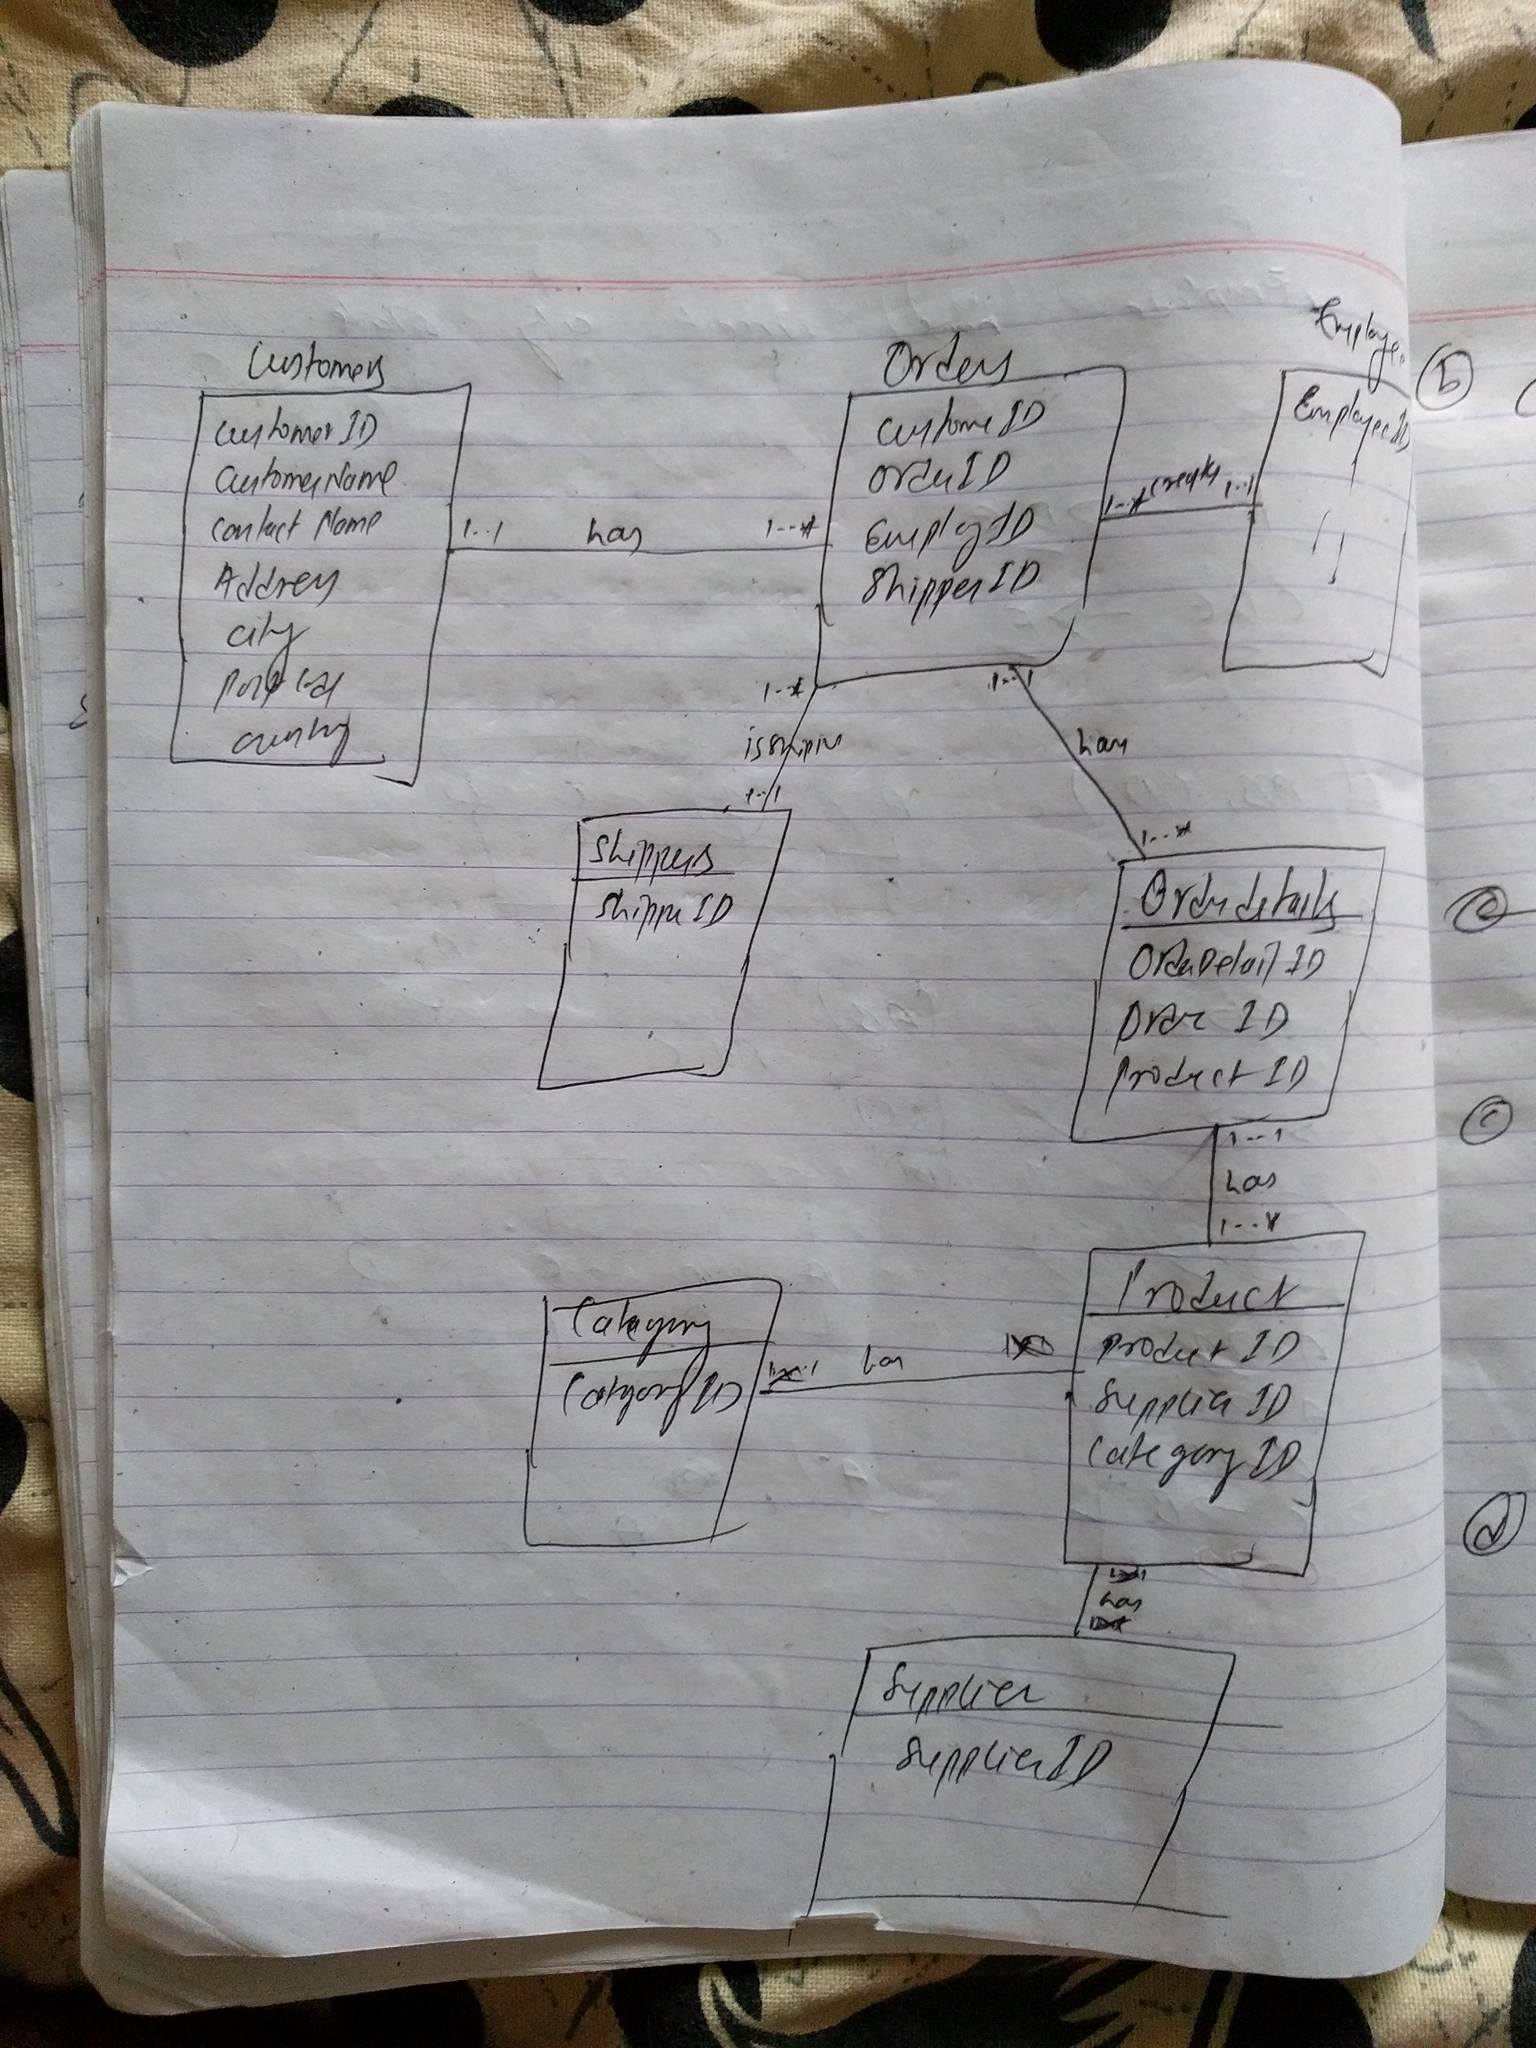 Customers
CustomerID
CustomerName
Contact Name
Address
City
Country
1..1
has
1...*
Orders
CustomeID
OrderID
EmployID
ShipperID
1..*
1..1
Employee
EmployeeID
b
1..*
1..1
1...1
has
1...*
Shippers
ShippeID
Orderdetails
OrderDetailID
Order ID
Product ID
c
1...1
has
1...*
Product
Product ID
Supplier ID
Category ID
Category
CategoryID
has
d
has
Supplier
SupplierID